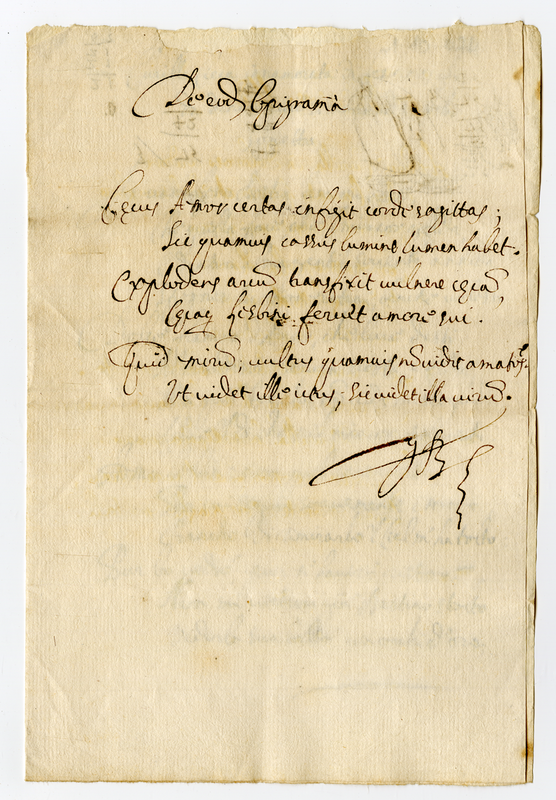 De eod Epigramã
Cęcus Amor certas infigit corde sagittas;
Sic quamuis cassus lumine, lumen habet.
Explodens arcũ transfixit vulnere cęcã,
Cęcaq; Lisbini feruet amore sui.
Quid mirũ; vultus quamuis nõ vidit amatos,
Vt videt ille ictus, sic videt illa virũ.